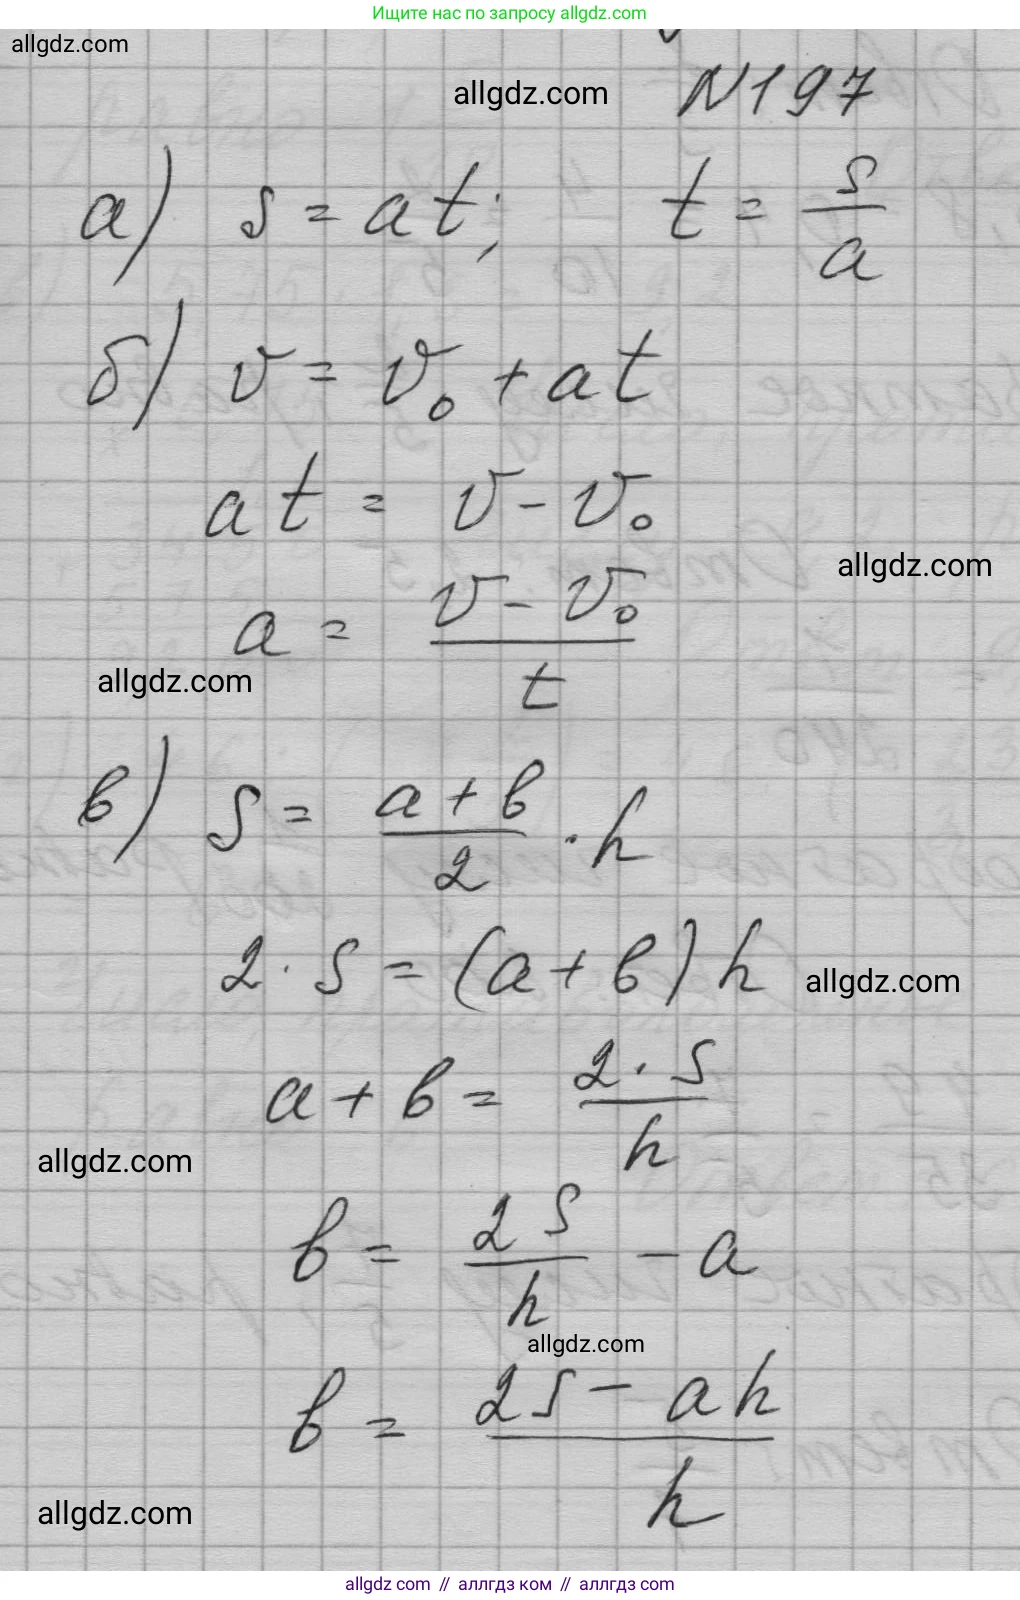 Ищите нас по запросу allgdz.com
allgdz.com
allgdz.com N197
а) s = at; t = s/a
б) v = v₀ + at
at = v - v₀
allgdz.com
a = (v - v₀)/t
allgdz.com
в) S = (a + b)/2 · h
2 · S = (a + b) h
allgdz.com
a + b = (2 · S)/h
allgdz.com
b = 2S/h - a
allgdz.com
b = (2S - ah)/h
allgdz.com
allgdz com // аллгдз ком // аллгдз com